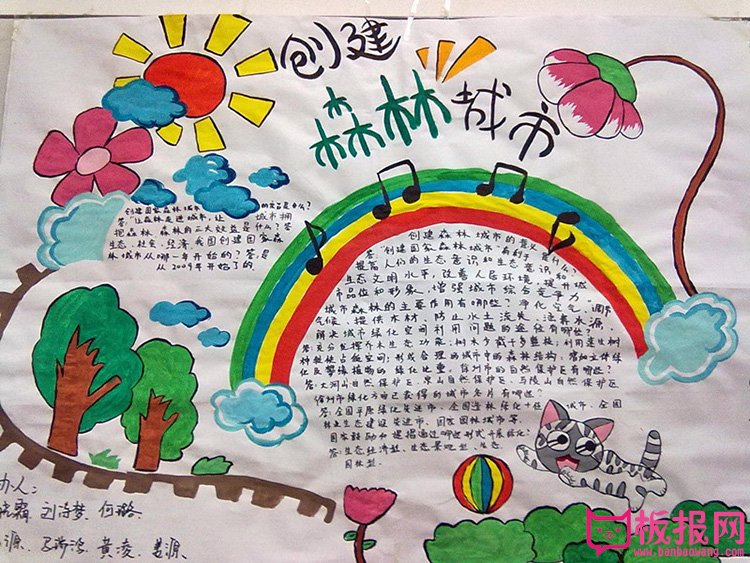 创建
森林城市
创建国家森林城市的宗旨是什么?
答:"让森林走进城市,让城市拥
把森林.森林的三大效益是什么?答
生态,社会,经济.我国创建国家森
林城市从哪一年开始的?答:是
从2009年开始了的.
创建森林城市的意义是什么?
答:"创建国家森林城市"有利于
提高人们的生态意识和生态意识和
生态文明水平,改善人居环境.提升城
市品位和形象,增强城市综合竞争力.
城市森林的主要作用有哪些?净化空气,调节
气候,提供木材,防止水土流失,涵养水源.
解决城市绿化空间利用问题的途径有哪些?
答:充分发挥乔木生态功能,树木
种植使占据空间;形成合理的城市中的森林结构,增加立体绿
化及攀缘植物的绿化比重.徐州市的自然保护区有哪些?
答:大洞山自然保护区,泉山自然保护区,马陵山自然保护区
徐州市绿化方面已获得的城市名片有哪些?
答:全国平原绿化先进市,全国造林绿化十佳城市,全国
林业生态建设先进市,国家园林城市等.
国家鼓励和提倡通过哪些形式开展绿化?
答:生态经济型,生态景观型,生态
园林型.
办人:
霜 刘诗梦 何璐
源. 黄凌 姜源
板报网
www.banbaowang.com